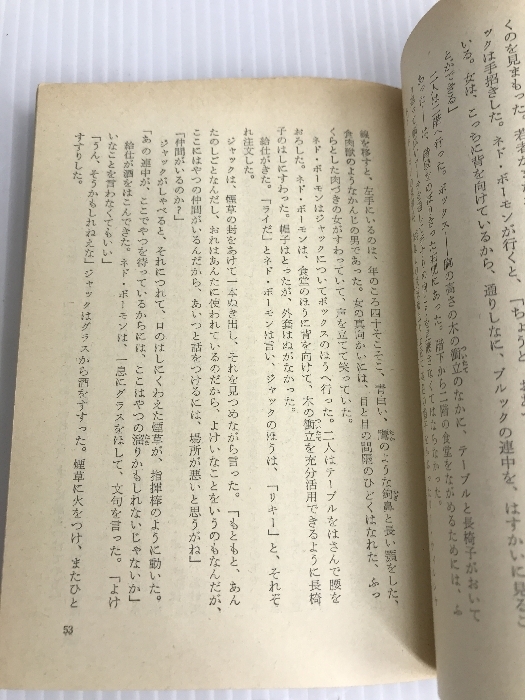 くのを見まもった。
ックは手招きした。ネド・ボーモンが行くと、「ちょっと
いる。女は、こっちに背を向けているから、通りしなに、ブルックの連中を、はすかいに見るこ
とができる」
二人は二階へ行った。ボックスは
の高さの木の衝立のなかに、テーブルと長椅子がおいて
階下から二階の食堂をながめるためには、
線を移すと、左手にいるのは、年のころ四十そこそこ、青白い、
食肉獣のようなかんじの男であった。女の真向かいには、目と目の間隔のひどくはなれた、ふっ
くらとした肉づきの女がすわっていて、声を立てて笑っていた。
ネド・ボーモンはジャックについてボックスのほうへ行った。二人はテーブルをはさんで腰を
おろした。ネド・ボーモンは、食堂のほうに背を向けて、木の衝立を充分活用できるように長椅
子のはしにすわった。帽子はとったが、外套はぬがなかった。
給仕がきた。「ライだ」とネド・ボーモンは言い、ジャックのほうは、「リキー」と、それぞ
れ注文した。
ジャックは、煙草の封をあけて一本ぬき出し、それを見つめながら言った。「もともと、あん
たのしごとなんだし、おれはあんたに使われているのだから、よけいなことをいうのもなんだが、
ここにはやつの仲間がいるんだから、あいつと話をつけるには、場所が悪いと思うがね」
「仲間がいるのか？」
ジャックがしゃべると、それにつれて、口のはしにくわえた煙草が、指揮棒のように動いた。
「あの連中が、ここでやつを待っているからには、ここはやつの溜りかもしれないじゃないか」
給仕が酒をはこんできた。ネド・ボーモンは、一息にグラスをほして、文句を言った。「よけ
いなことを言わなくてもいい」
「うん、そうかもしれねえな」ジャックはグラスから酒をすすった。煙草に火をつけ、またひと
すすりした。
53